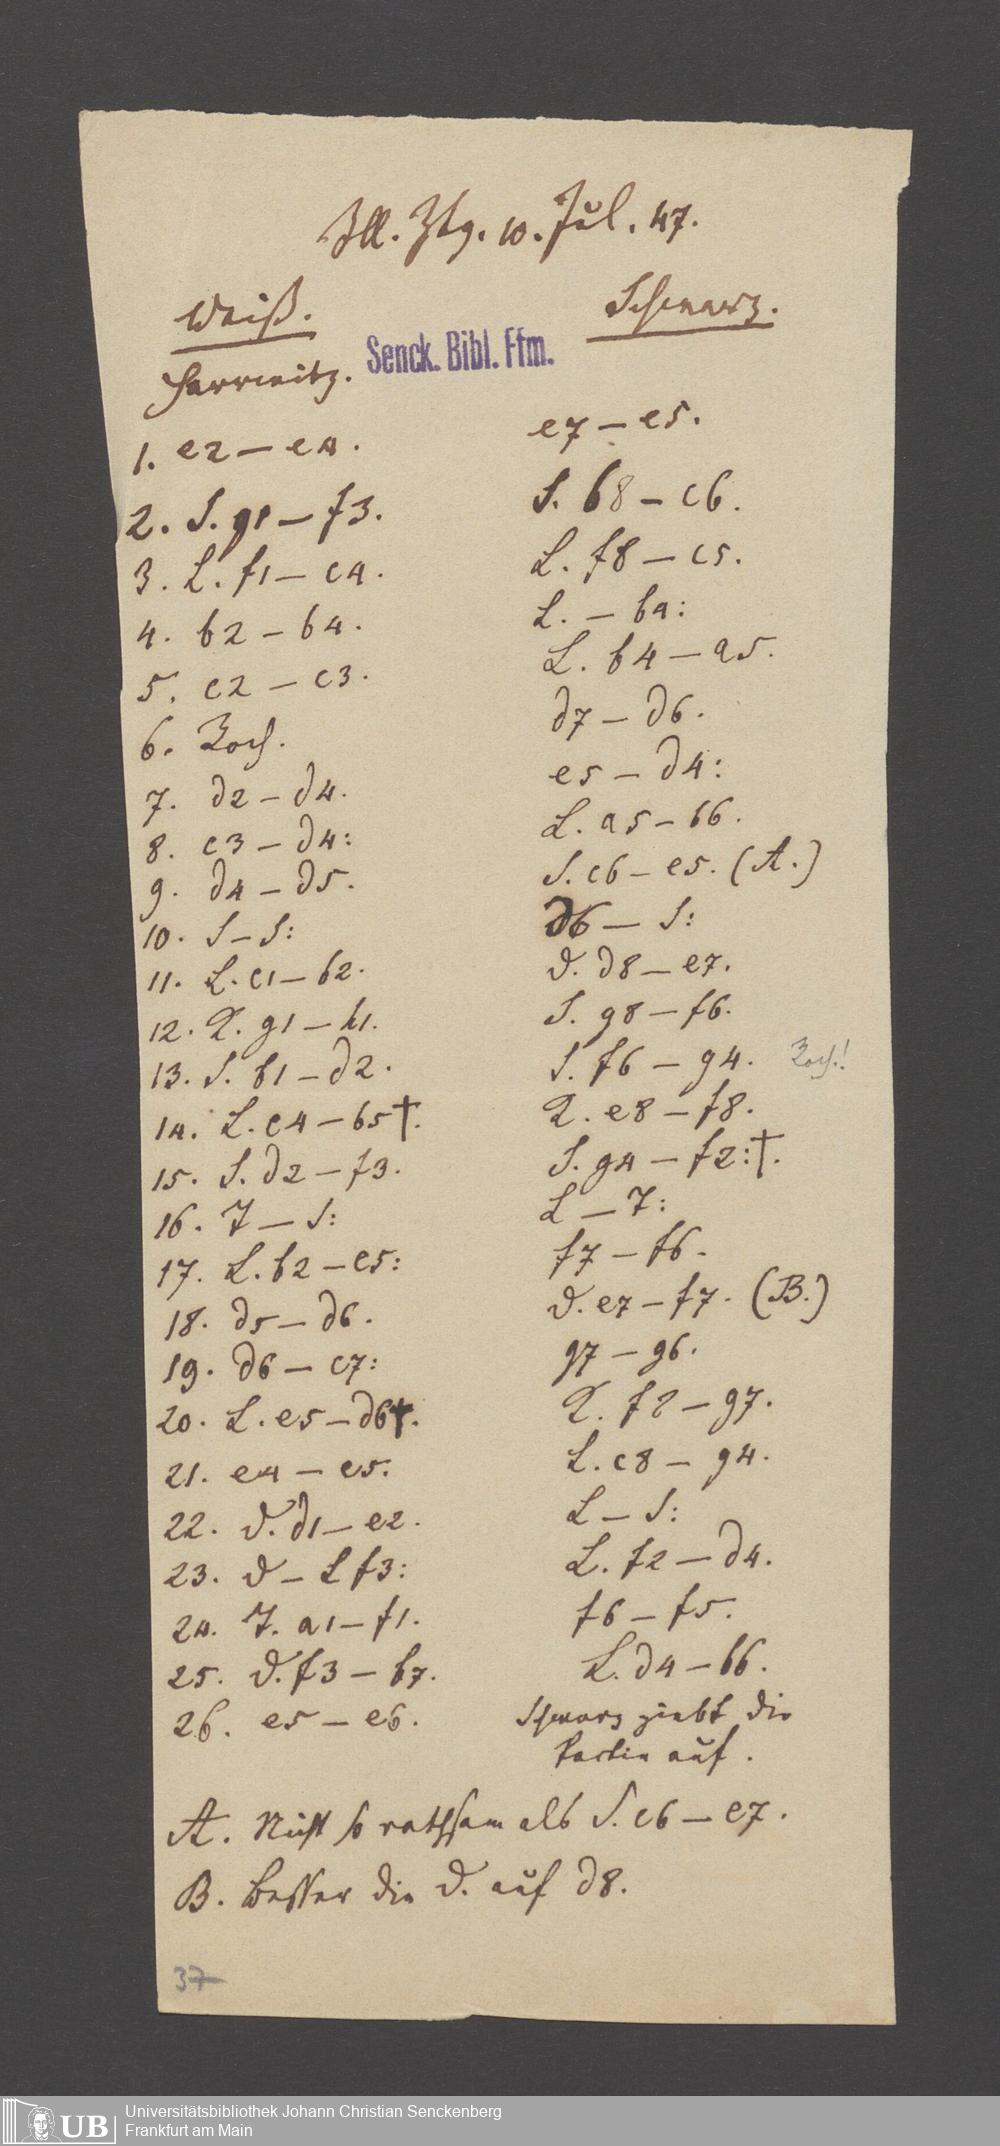 Ill. Ztg. 10. Jul. 47.
Weiß. Schwarz.
Senck. Bibl. Ffm.
Harrwitz.
1. e2 — e4. e7 — e5.
2. S. g1 — f3. S. b8 — c6.
3. L. f1 — c4. L. f8 — c5.
4. b2 — b4. L. — b4:
5. c2 — c3. L. b4 — a5.
6. Roch. d7 — d6.
7. d2 — d4. e5 — d4:
8. c3 — d4: L. a5 — b6.
9. d4 — d5. S. c6 — e5. (A.)
10. S — S: d6 — S:
11. L. c1 — b2. D. d8 — e7.
12. K. g1 — h1. S. g8 — f6.
13. S. b1 — d2. S. f6 — g4. Roch.!
14. L. c4 — b5†. K. e8 — f8.
15. S. d2 — f3. S. g4 — f2:†.
16. T — S: L — T:
17. L. b2 — e5: f7 — f6.
18. d5 — d6. D. e7 — f7. (B.)
19. d6 — c7: g7 — g6.
20. L. e5 — d6†. K. f8 — g7.
21. e4 — e5. L. c8 — g4.
22. D. d1 — e2. L — S:
23. D — L f3: L. f2 — d4.
24. T. a1 — f1. f6 — f5.
25. D. f3 — b7. L. d4 — b6.
26. e5 — e6. Schwarz giebt die
Partie auf.
A. Nicht so rathsam als S. c6 — e7.
B. Besser die D. auf d8.
37
UB Universitätsbibliothek Johann Christian Senckenberg
Frankfurt am Main